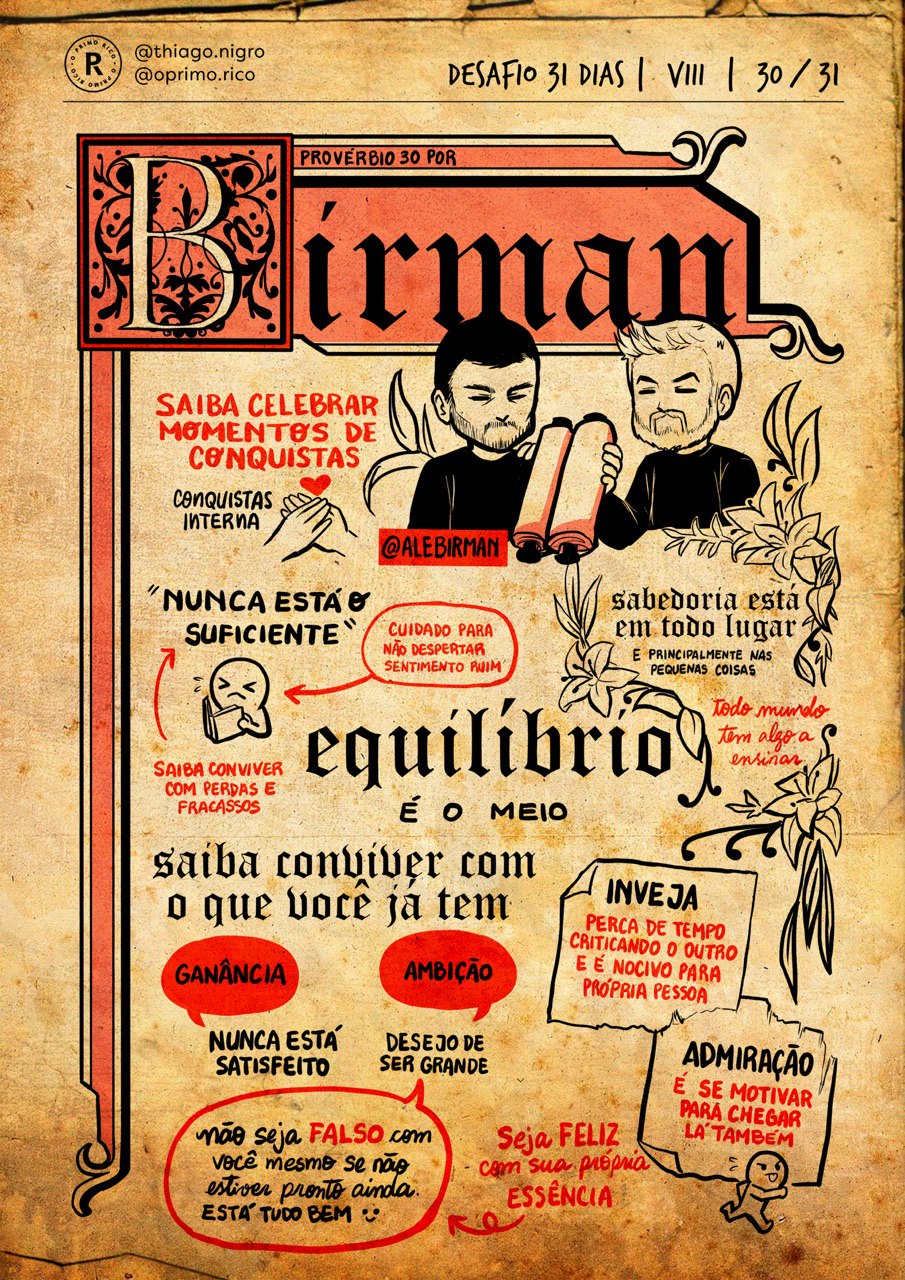 R
O PRIMO RICO · O PRIMO RICO ·
@thiago.nigro
@oprimo.rico
DESAFIO 31 DIAS | VIII | 30 / 31
PROVÉRBIO 30 POR
Birman
SAIBA CELEBRAR
MOMENTOS DE
CONQUISTAS
CONQUISTAS
INTERNA
@ALEBIRMAN
"NUNCA ESTÁ O
SUFICIENTE"
CUIDADO PARA
NÃO DESPERTAR
SENTIMENTO RUIM
sabedoria está
em todo lugar
E PRINCIPALMENTE NAS
PEQUENAS COISAS
todo mundo
tem algo a
ensinar
SAIBA CONVIVER
COM PERDAS E
FRACASSOS
equilíbrio
É O MEIO
saiba conviver com
o que você já tem
GANÂNCIA
NUNCA ESTÁ
SATISFEITO
AMBIÇÃO
DESEJO DE
SER GRANDE
INVEJA
PERCA DE TEMPO
CRITICANDO O OUTRO
E É NOCIVO PARA
PRÓPRIA PESSOA
ADMIRAÇÃO
É SE MOTIVAR
PARA CHEGAR
LÁ TAMBÉM
não seja FALSO com
você mesmo se não
estiver pronto ainda.
ESTÁ TUDO BEM :)
Seja FELIZ
com sua própria
ESSÊNCIA